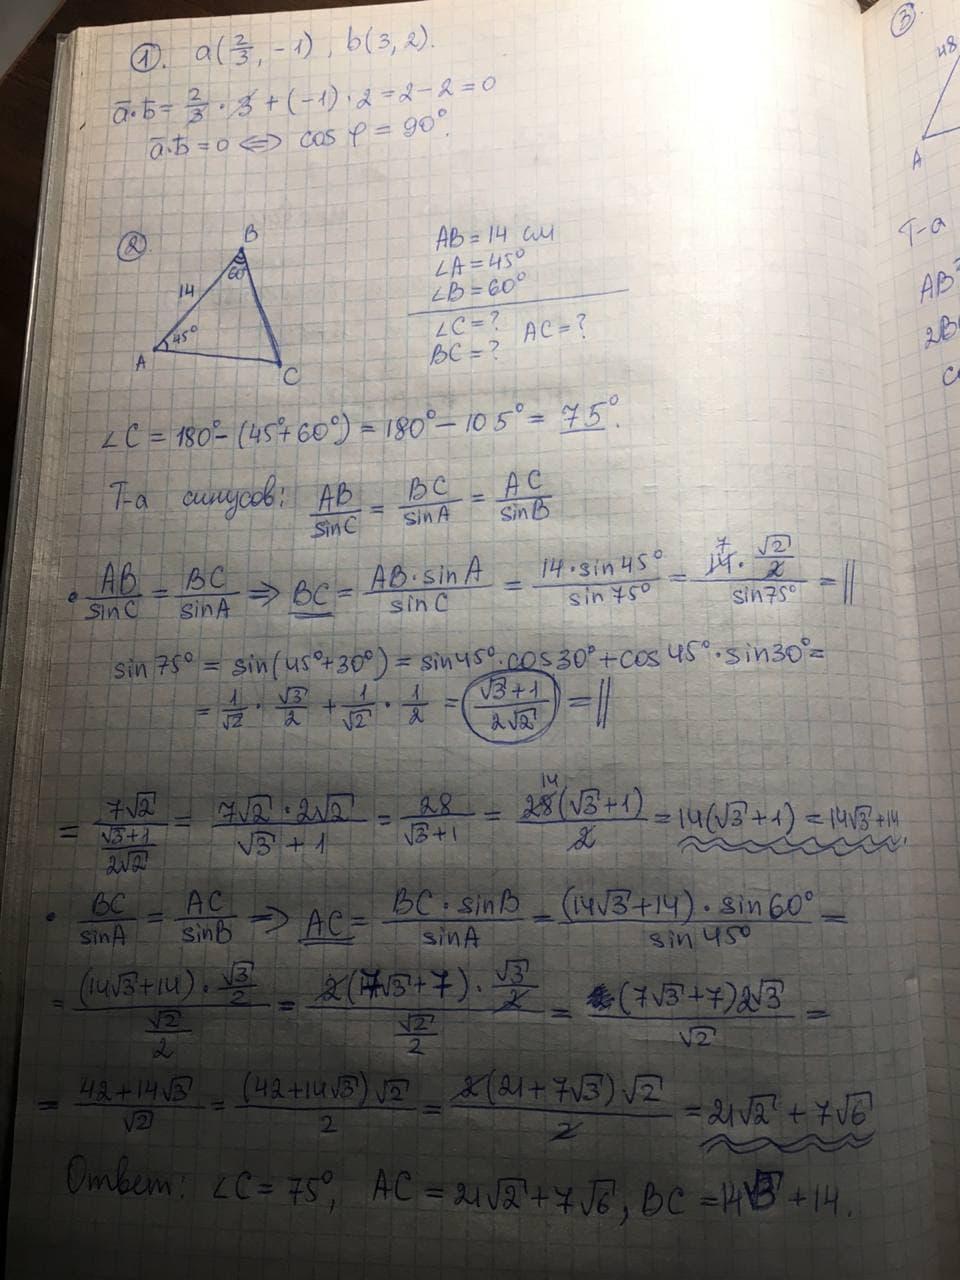 ①. a(2/3, -1), b(3, 2).
a̅·b̅ = 2/3 · 3 + (-1) · 2 = 2 - 2 = 0
a̅·b̅ = 0 ⟺ cos φ = 90°.
②
B
60°
14
45°
A
C
AB = 14 см
∠A = 45°
∠B = 60°
∠C = ? AC = ?
BC = ?
∠C = 180° - (45° + 60°) = 180° - 105° = 75°.
Т-а синусов: AB/sinC = BC/sinA = AC/sinB
• AB/sinC = BC/sinA ⇒ BC = AB·sinA/sinC = 14·sin45°/sin75° = 7 14·√2/2/sin75° = ||
sin75° = sin(45°+30°) = sin45°·cos30° + cos45°·sin30° =
= 1/√2 · √3/2 + 1/√2 · 1/2 = (√3+1)/(2√2) = ||
= 7√2/((√3+1)/(2√2)) = 7√2·2√2/(√3+1) = 28/(√3+1) = 14 28(√3+1)/2 = 14(√3+1) = 14√3+14.
• BC/sinA = AC/sinB ⇒ AC = BC·sinB/sinA = (14√3+14)·sin60°/sin45° =
= (14√3+14)·√3/2/(√2/2) = 2(7√3+7)·√3/2/(√2/2) = (7√3+7)2√3/√2 =
= (42+14√3)/√2 = (42+14√3)√2/2 = 2(21+7√3)√2/2 = 21√2 + 7√6
Ответ: ∠C = 75°, AC = 21√2 + 7√6, BC = 14√3 + 14.
③.
48
A
Т-а
AB²
2B